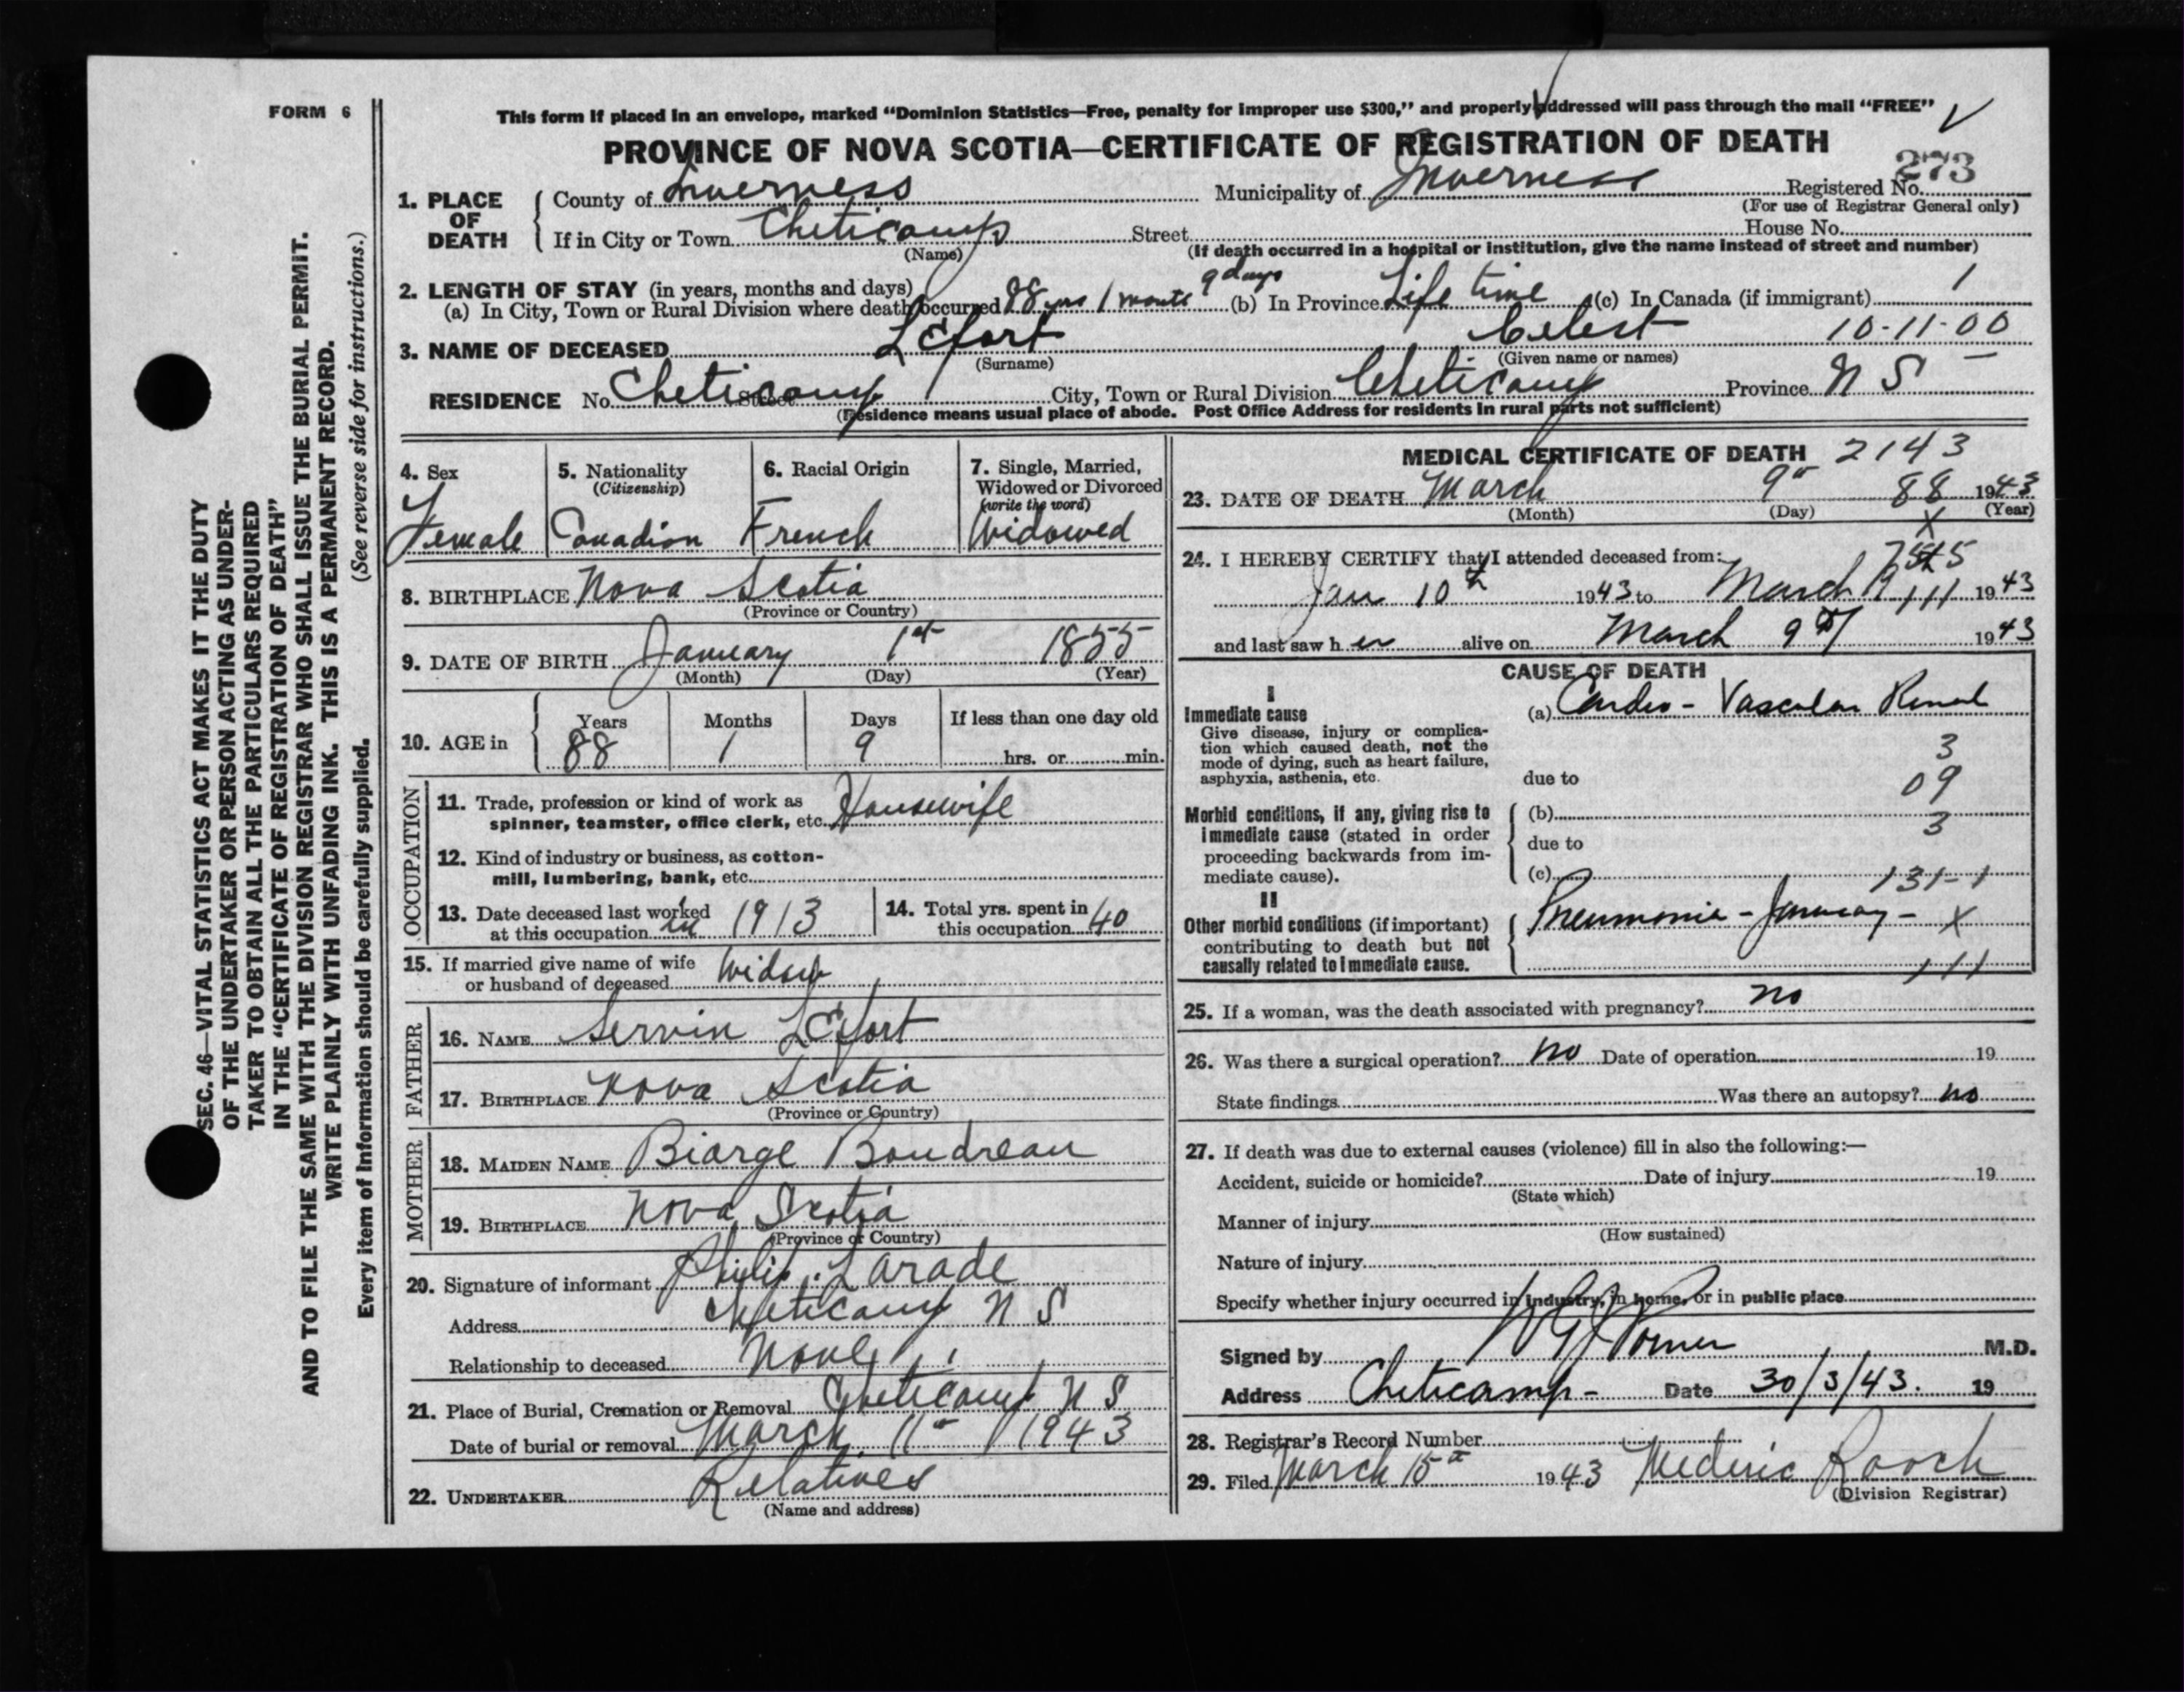 FORM 6
This form if placed in an envelope, marked "Dominion Statistics—Free, penalty for improper use $300," and properly addressed will pass through the mail "FREE"
PROVINCE OF NOVA SCOTIA—CERTIFICATE OF REGISTRATION OF DEATH
273
1. PLACE OF DEATH
County of Inverness Municipality of Inverness Registered No.
(For use of Registrar General only)
If in City or Town Cheticamp Street House No.
(Name) (If death occurred in a hospital or institution, give the name instead of street and number)
2. LENGTH OF STAY (in years, months and days)
(a) In City, Town or Rural Division where death occurred 88 yrs 1 month 9 days (b) In Province Life time (c) In Canada (if immigrant) 1
3. NAME OF DECEASED LEfort Celest 10-11-00
(Surname) (Given name or names)
RESIDENCE No. Cheticamp Street City, Town or Rural Division Cheticamp Province N S
(Residence means usual place of abode. Post Office Address for residents in rural parts not sufficient)
4. Sex
Female
5. Nationality
(Citizenship)
Canadian
6. Racial Origin
French
7. Single, Married,
Widowed or Divorced
(write the word)
Widowed
8. BIRTHPLACE Nova Scotia
(Province or Country)
9. DATE OF BIRTH January 1st 1855
(Month) (Day) (Year)
10. AGE in
Years Months Days If less than one day old
88 1 9 hrs. or min.
OCCUPATION
11. Trade, profession or kind of work as
spinner, teamster, office clerk, etc. Housewife
12. Kind of industry or business, as cotton-
mill, lumbering, bank, etc.
13. Date deceased last worked
at this occupation in 1913
14. Total yrs. spent in
this occupation 40
15. If married give name of wife
or husband of deceased Widow
FATHER
16. NAME Servin LEfort
17. BIRTHPLACE Nova Scotia
(Province or Country)
MOTHER
18. MAIDEN NAME Biarge Boudreau
19. BIRTHPLACE Nova Scotia
(Province or Country)
20. Signature of informant Philip Larade
Address Cheticamp N S
Relationship to deceased None
21. Place of Burial, Cremation or Removal Cheticamp N S
Date of burial or removal March 11th 1943
22. UNDERTAKER Relatives
(Name and address)
MEDICAL CERTIFICATE OF DEATH 2143
23. DATE OF DEATH March 9th 88 1943
(Month) (Day) (Year)
X
24. I HEREBY CERTIFY that I attended deceased from:
Jan 10th 1943 to March 9 111 1943
and last saw her alive on March 9th 1943
CAUSE OF DEATH
I
Immediate cause
Give disease, injury or complica-
tion which caused death, not the
mode of dying, such as heart failure,
asphyxia, asthenia, etc.
(a) Cardio - Vascular Renal
3
due to 09
Morbid conditions, if any, giving rise to
immediate cause (stated in order
proceeding backwards from im-
mediate cause).
(b)
3
due to
(c) 131-1
II
Other morbid conditions (if important)
contributing to death but not
causally related to immediate cause.
Pneumonia - January - X
111
25. If a woman, was the death associated with pregnancy? no
26. Was there a surgical operation? no Date of operation 19
State findings Was there an autopsy? no
27. If death was due to external causes (violence) fill in also the following:—
Accident, suicide or homicide? Date of injury 19
(State which)
Manner of injury
(How sustained)
Nature of injury
Specify whether injury occurred in industry, in home, or in public place
Signed by M.D.
Address Cheticamp - Date 30/3/43. 19
28. Registrar's Record Number
29. Filed March 15th 1943 Mederic Roach
(Division Registrar)
SEC. 46—VITAL STATISTICS ACT MAKES IT THE DUTY
OF THE UNDERTAKER OR PERSON ACTING AS UNDER-
TAKER TO OBTAIN ALL THE PARTICULARS REQUIRED
IN THE "CERTIFICATE OF REGISTRATION OF DEATH"
AND TO FILE THE SAME WITH THE DIVISION REGISTRAR WHO SHALL ISSUE THE BURIAL PERMIT.
WRITE PLAINLY WITH UNFADING INK. THIS IS A PERMANENT RECORD.
Every item of Information should be carefully supplied. (See reverse side for instructions.)